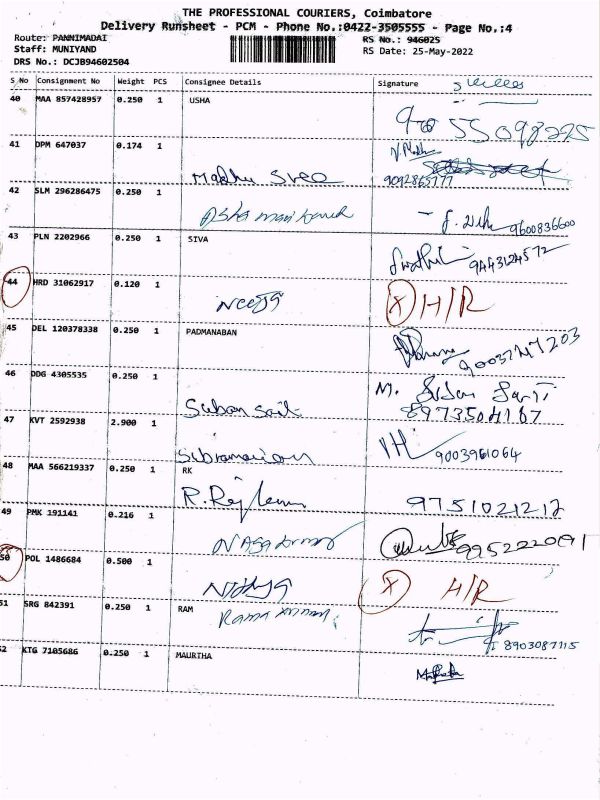 THE PROFESSIONAL COURIERS, Coimbatore
Delivery Runsheet - PCM - Phone No.:0422-3505555 - Page No.:4
Route: PANNIMADAI RS No.: 946025
Staff: MUNIYAND RS Date: 25-May-2022
DRS No.: DCJB94602504
S No Consignment No Weight PCS Consignee Details Signature
40 MAA 857428957 0.250 1 USHA
41 DPM 647037 0.174 1
Madhu Sree 9092865777
42 SLM 296286475 0.250 1
9600836600
43 PLN 2202966 0.250 1 SIVA
9443124572
44 HRD 31062917 0.120 1
Neeja X H/R
45 DEL 120378338 0.250 1 PADMANABAN
9003747203
46 DDG 4305535 0.250 1
8973504167
47 KVT 2592938 2.900 1
Subramaniam 9003961064
48 MAA 566219337 0.250 1 RK
9751021212
49 PMK 191141 0.216 1
50 POL 1486684 0.500 1
X H/R
51 SRG 842391 0.250 1 RAM
8903087115
52 KTG 7105686 0.250 1 MAURTHA